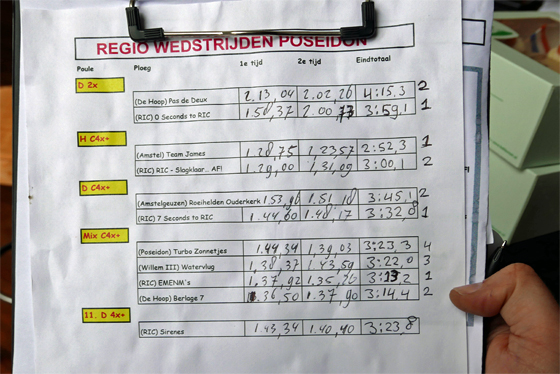 REGIO WEDSTRIJDEN POSEIDON
Poule Ploeg 1e tijd 2e tijd Eindtotaal
D 2x
(De Hoop) Pas de Deux 2.13,04 2.02,26 4:15,3 2
(RIC) 0 Seconds to RIC 1.58,37 2.00 3:59,1 1
H C4x+
(Amstel) Team James 1.28,75 1.23,57 2:52,3 1
(RIC) RIC - Slagklaar.. AF! 1.29,00 1,31,09 3:00,1 2
D C4x+
(Amstelgeuzen) Roeihelden Ouderkerk 1.53,96 1.51,18 3:45,1 2
(RIC) 7 Seconds to RIC 1.44,00 1.48,17 3:32,0 1
Mix C4x+
(Poseidon) Turbo Zonnetjes 1.44,34 1,39,03 3:23,3 4
(Willem III) Watervlug 1,38,37 1.43,59 3:22,0 3
(RIC) EMENM's 1.37,92 1.35,26 3:13,2 1
(De Hoop) Berlage 7 1.36,50 1.37,90 3:14,4 2
11. D 4x+
(RIC) Sirenes 1.43,34 1.40,40 3:23,8